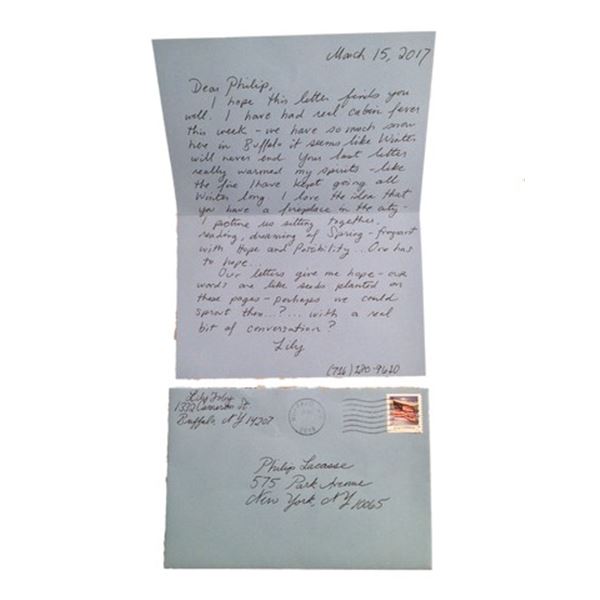 March 15, 2017
Dear Philip,
I hope this letter finds you
well. I have had real cabin fever
this week - we have so much snow
here in Buffalo it seems like Winter
will never end Your last letter
really warmed my spirits - like
the fire I have kept going all
Winter long. I love the idea that
you have a fireplace in the city -
I picture us sitting together,
reading, dreaming of Spring - fragrant
with Hope and Possibility... One has
to hope...
Our letters give me hope - our
words are like seeds planted on
these pages - perhaps we could
sprout them...?... with a real
bit of conversation?
Lily
(716) 280-9620
Lily
1332 Cameron St.
Buffalo, NY 14207
Philip Lacasse
575 Park Avenue
New York, NY 10065